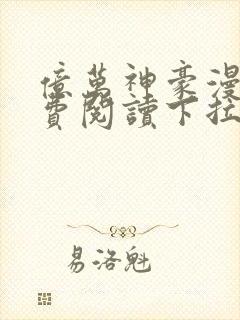 億萬神豪漫
費閱讀下拉
易洛魁